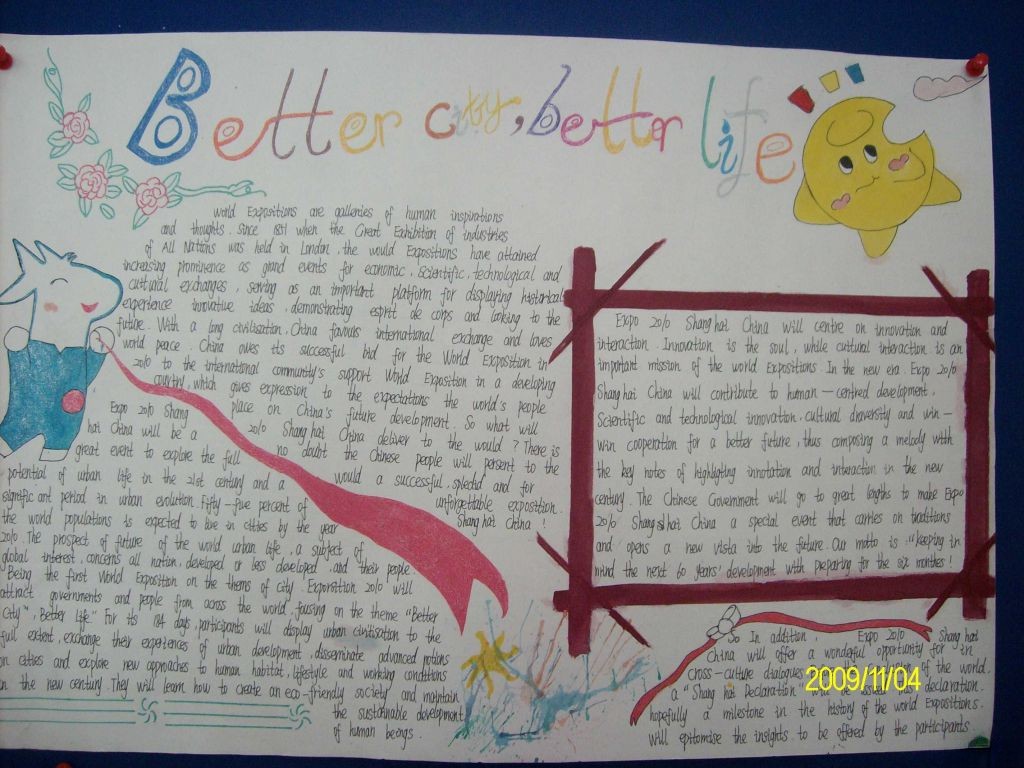 Better city, better life
world Expositions are galleries of human inspirations
and thoughts. Since 1851 when the Great Exhibition of industries
of All Nations was held in London, the would Expositions have attained
increasing prominence as grand events for economic, scientific, technological and
cultural exchanges, serving as an important platform for displaying historical
experience innovative ideas, demonstrating esprit de corps and looking to the
future. With a long civilisation, China favours international exchange and loves
world peace. China owes its successful bid for the World Exposition in
2010 to the international community's support World Exposition in a developing
country, which gives expression to the expectations the world's people
place on China's future development. So what will
2010 Shang hai China deliver to the would? There is
no doubt the Chinese people will persent to the
would a successful, splecid and for
unforgettable exposition.
Shang hai China!
Expo 2010 Shang
hai China will be a
great event to explore the full
potential of urban life in the 21st century and a
significant period in urban evolution. Fifty-five percent of
the world populations is expected to live in cities by the year
2010. The prospect of future of the world urban life, a subject of
global interest, concerns all nation, developed or less developed, and their people.
Being the first World Exposition on the theme of city. Exposition 2010 will
attract governments and people from across the world, focusing on the theme "Better
City", Better Life." For its 184 days, participants will display urban civilisation to the
full extent, exchange their experiences of urban development, disseminate advanced notions
on cities and explore new approaches to human habitat, lifestyle and working conditions
in the new century. They will learn how to create an eco-friendly society and maintain
the sustainable development
of human beings.
Expo 2010 Shanghai China will centre on innovation and
interaction. Innovation is the soul, while cultural interaction is an
important mission of the world Expositions. In the new era. Expo 2010
Shanghai China will contribute to human-centred development,
Scientific and technological innovation, cultural and win-
win cooperation for a better future, thus composing a melody with
the key notes of highlighting and interaction in the new
century. The Chinese Government will go to great lengths to make Expo
2010 Shanghai China a special event that carries on traditions
and opens a new vista into the future. Our motto is "keeping in
mind the next 60 years' development with preparing for the six months!
So In addition, Expo 2010 Shang hai
China will offer a wonderful opportunity for in
cross-culture dialogues of the world.
a "Shang hai Declaration declaration,
hopefully a milestone in the history of the world Expositions.
will epitomise the insights to be offered by the participants
2009/11/04